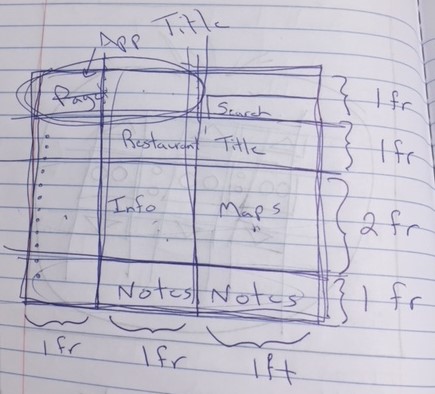 Title
App
Page
Search
1fr
Restaurant Title
1fr
Info Maps
2 fr
Notes Notes
1 fr
1fr 1fr 1ft